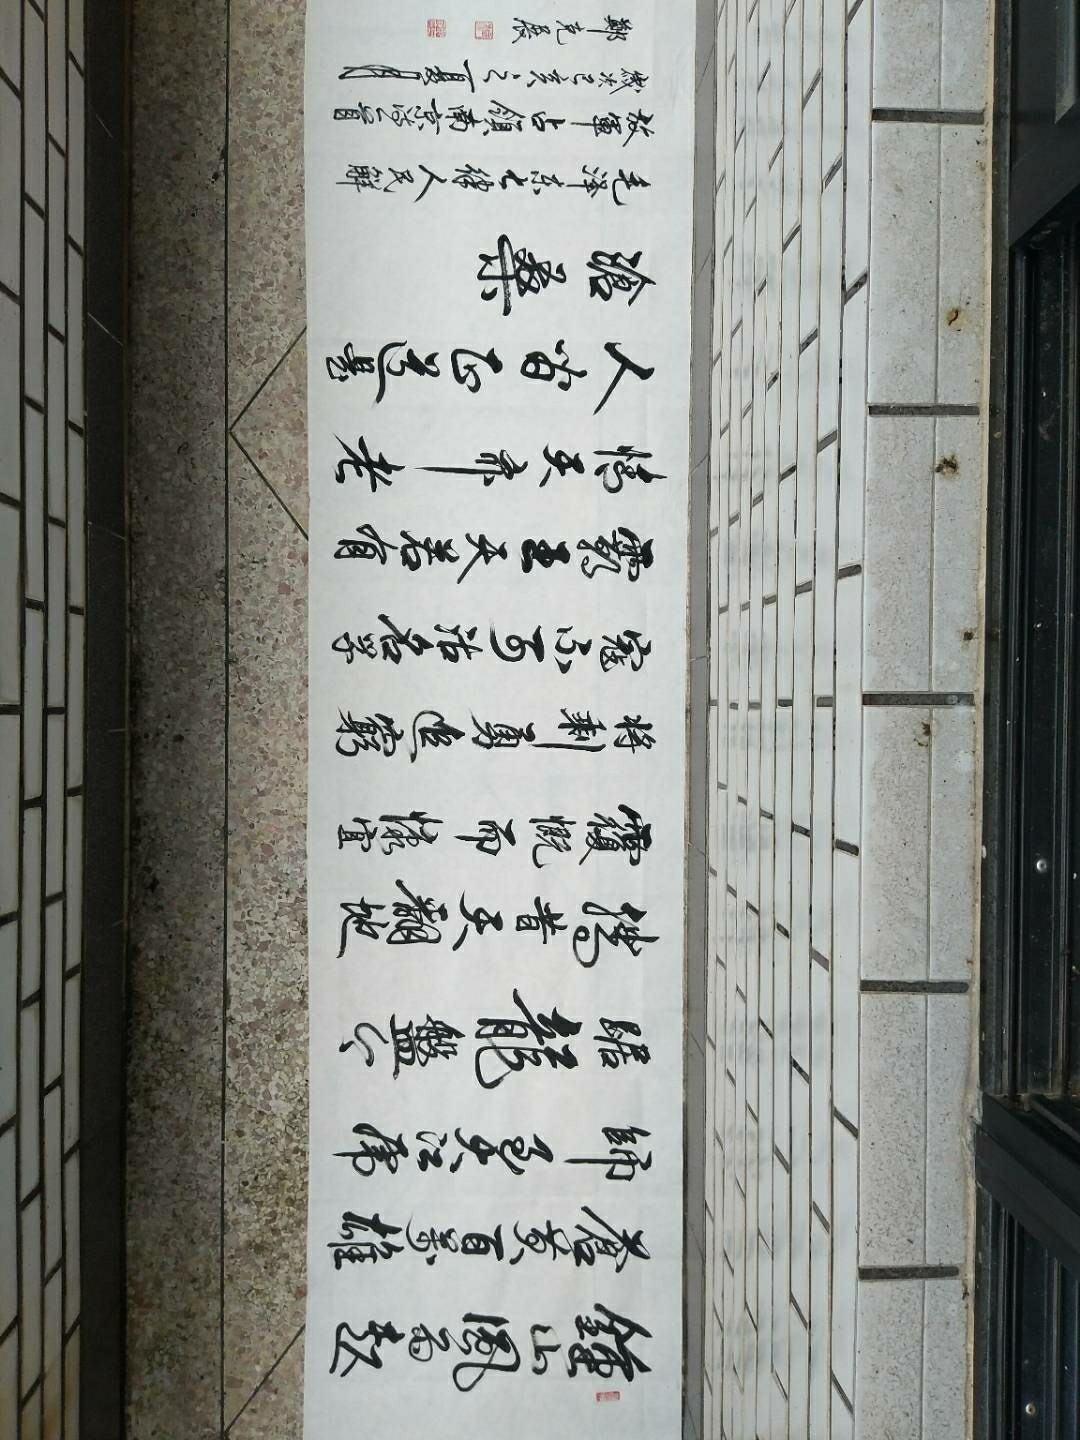 鐘山風雨起
蒼黃百萬雄
師過大江虎
踞龍盤今
勝昔天翻地
覆慨而慷宜
將剩勇追窮
寇不可沽名學
霸王天若有
情天亦老
人間正道是
滄桑
毛澤東七律人民解
放軍占領南京一首
歲次己亥之夏月
鄭克